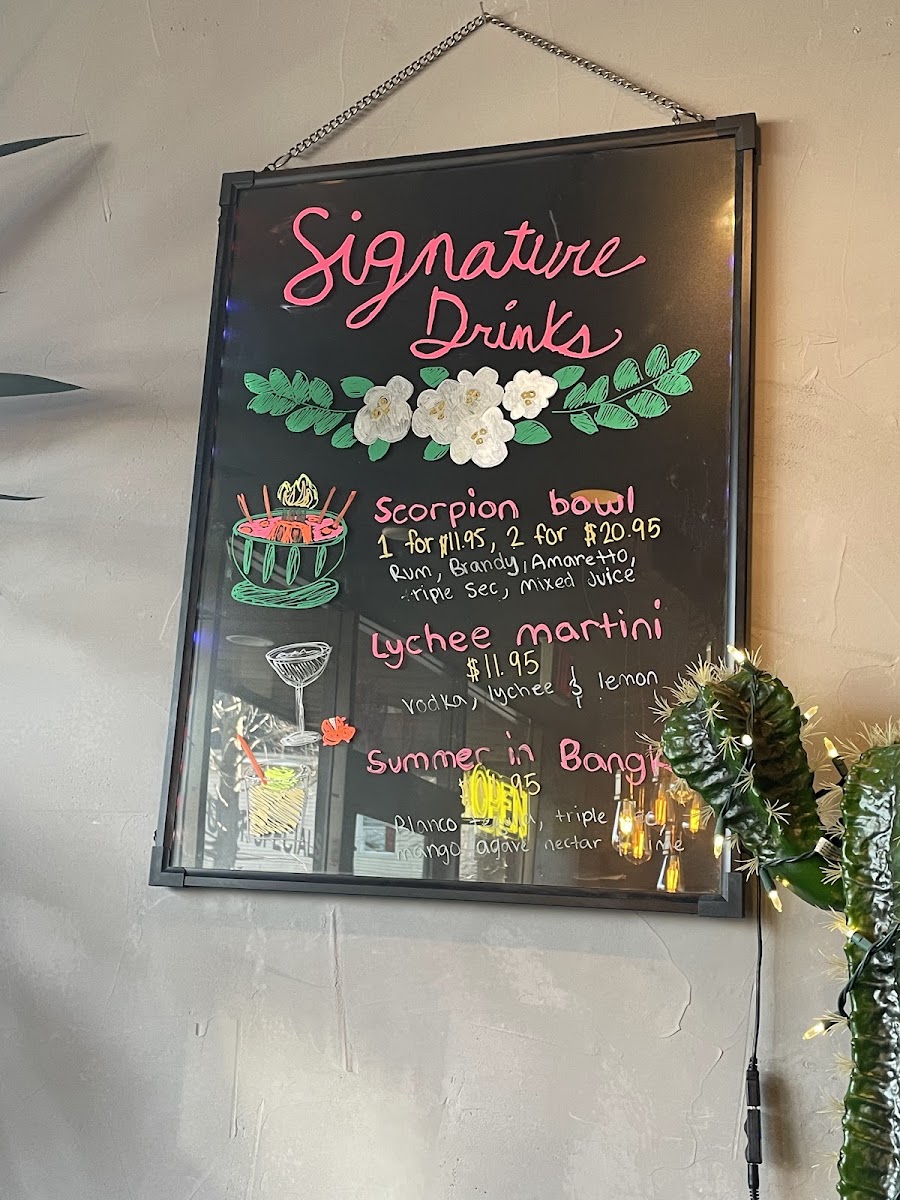 Signature
Drinks
Scorpion bowl
1 for $11.95, 2 for $20.95
Rum, Brandy, Amaretto,
triple Sec, Mixed Juice
Lychee martini
$11.95
vodka, lychee & lemon
Summer in Bangk
95
OPEN
Blanco triple
mango agave nectar
SPECIAL